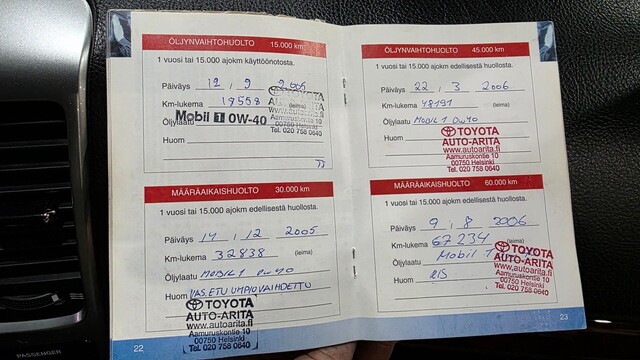 ÖLJYNVAIHTOHUOLTO 15.000 km
1 vuosi tai 15.000 ajokm käyttöönotosta.
Päiväys 12 , 9 2005
Km-lukema 17558 (leima)
Öljylaatu Mobil 1 0W-40
Huom
TOYOTA
AUTO-ARITA
www.autoarita.fi
Aamuruskontie 10
00750 Helsinki
Tel. 020 758 0640
MÄÄRÄAIKAISHUOLTO 30.000 km
1 vuosi tai 15.000 ajokm edellisestä huollosta.
Päiväys 14 , 12 2005
Km-lukema 32838 (leima)
Öljylaatu MOBIL 1 0W40
Huom VAS. ETU UMPIO VAIHDETTU
TOYOTA
AUTO-ARITA
www.autoarita.fi
Aamuruskontie 10
00750 Helsinki
Tel. 020 758 0640
22
ÖLJYNVAIHTOHUOLTO 45.000 km
1 vuosi tai 15.000 ajokm edellisestä huollosta.
Päiväys 22 , 3 2006
Km-lukema 48191 (leima)
Öljylaatu MOBIL 1 0W40
Huom
TOYOTA
AUTO-ARITA
www.autoarita.fi
Aamuruskontie 10
00750 Helsinki
Tel. 020 758 0640
MÄÄRÄAIKAISHUOLTO 60.000 km
1 vuosi tai 15.000 ajokm edellisestä huollosta.
Päiväys 9 , 8 2006
Km-lukema 67234 (leima)
Öljylaatu Mobil 1
Huom
TOYOTA
AUTO-ARITA
www.autoarita.fi
Aamuruskontie 10
00750 Helsinki
Tel. 020 758 0640
23
PASSENGER